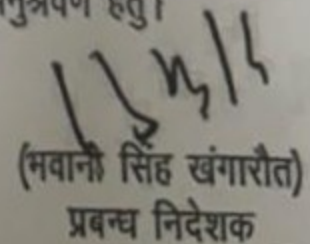 नुश्रवण हेतु।
(भवानी सिंह खंगारौत)
प्रबन्ध निदेशक